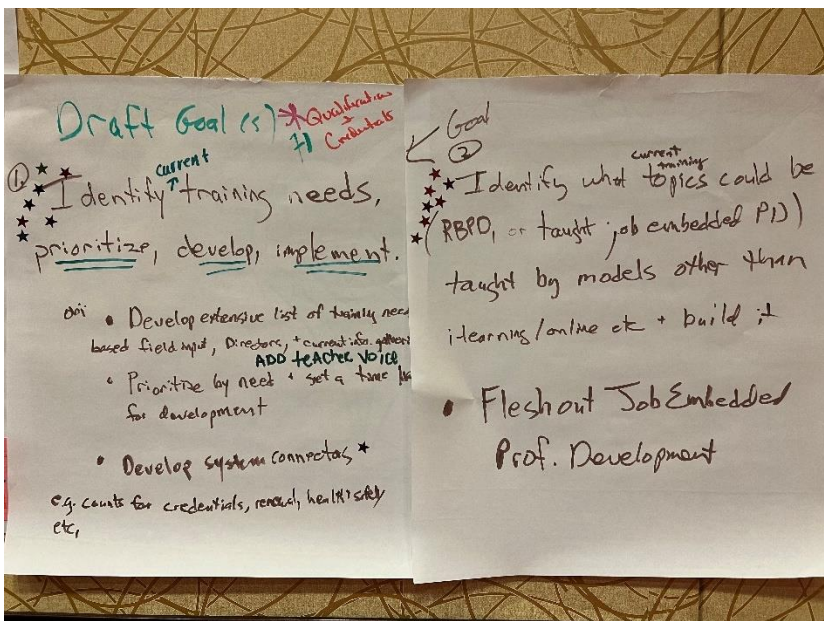 Draft Goal(s) * Qualification
Credentials
current
1. Identify training needs,
prioritize, develop, implement.
• Develop extensive list of training need
based field input, Directors, + current info.
ADD teACheR VOICe
• Prioritize by need + set a time
for development
• Develop system connectors ★
e.g. counts for credentials, renewal, health+safety
etc,
Goal
2
current
training
Identify what topics could be
(RBPD, or taught job embedded PD)
taught by models other than
itearning/online etc + build it
• Flesh out Job Embedded
Prof. Development